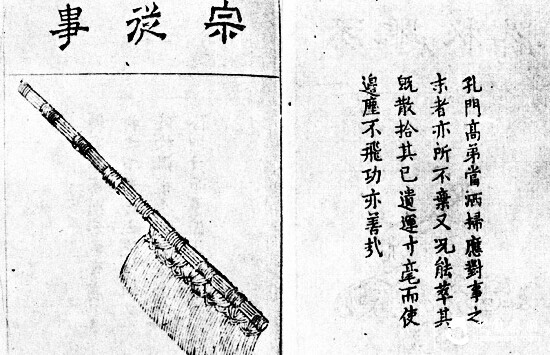 宗從事
孔門高弟當洒掃應對事之
末者亦所不棄又況能萃其
既散拾其已遺運寸毫而使
邊塵不飛功亦善哉